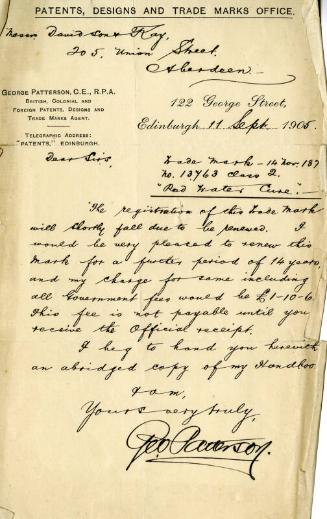 PATENTS, DESIGNS AND TRADE MARKS OFFICE.
Messrs Davidson & Kay,
205, Union Street,
Aberdeen
GEORGE PATTERSON, C.E., R.P.A.
BRITISH, COLONIAL AND
FOREIGN PATENTS, DESIGNS AND
TRADE MARKS AGENT.
TELEGRAPHIC ADDRESS:
"PATENTS," EDINBURGH.
122 George Street,
Edinburgh 11 Sept 1905
Dear Sirs
Trade Mark - 14 Nov. 187
No. 13763 Class 2.
"Red Water Cure".
The registration of this Trade Mark
will shortly fall due to be renewed. I
would be very pleased to renew this
Mark for a further period of 14 years
and my charge for same including
all Government fees would be £1-10-6.
This fee is not payable until you
receive the Official receipt.
I beg to hand you herewith
an abridged copy of my Handboo
I am,
Yours very truly,
Geo. Patterson.